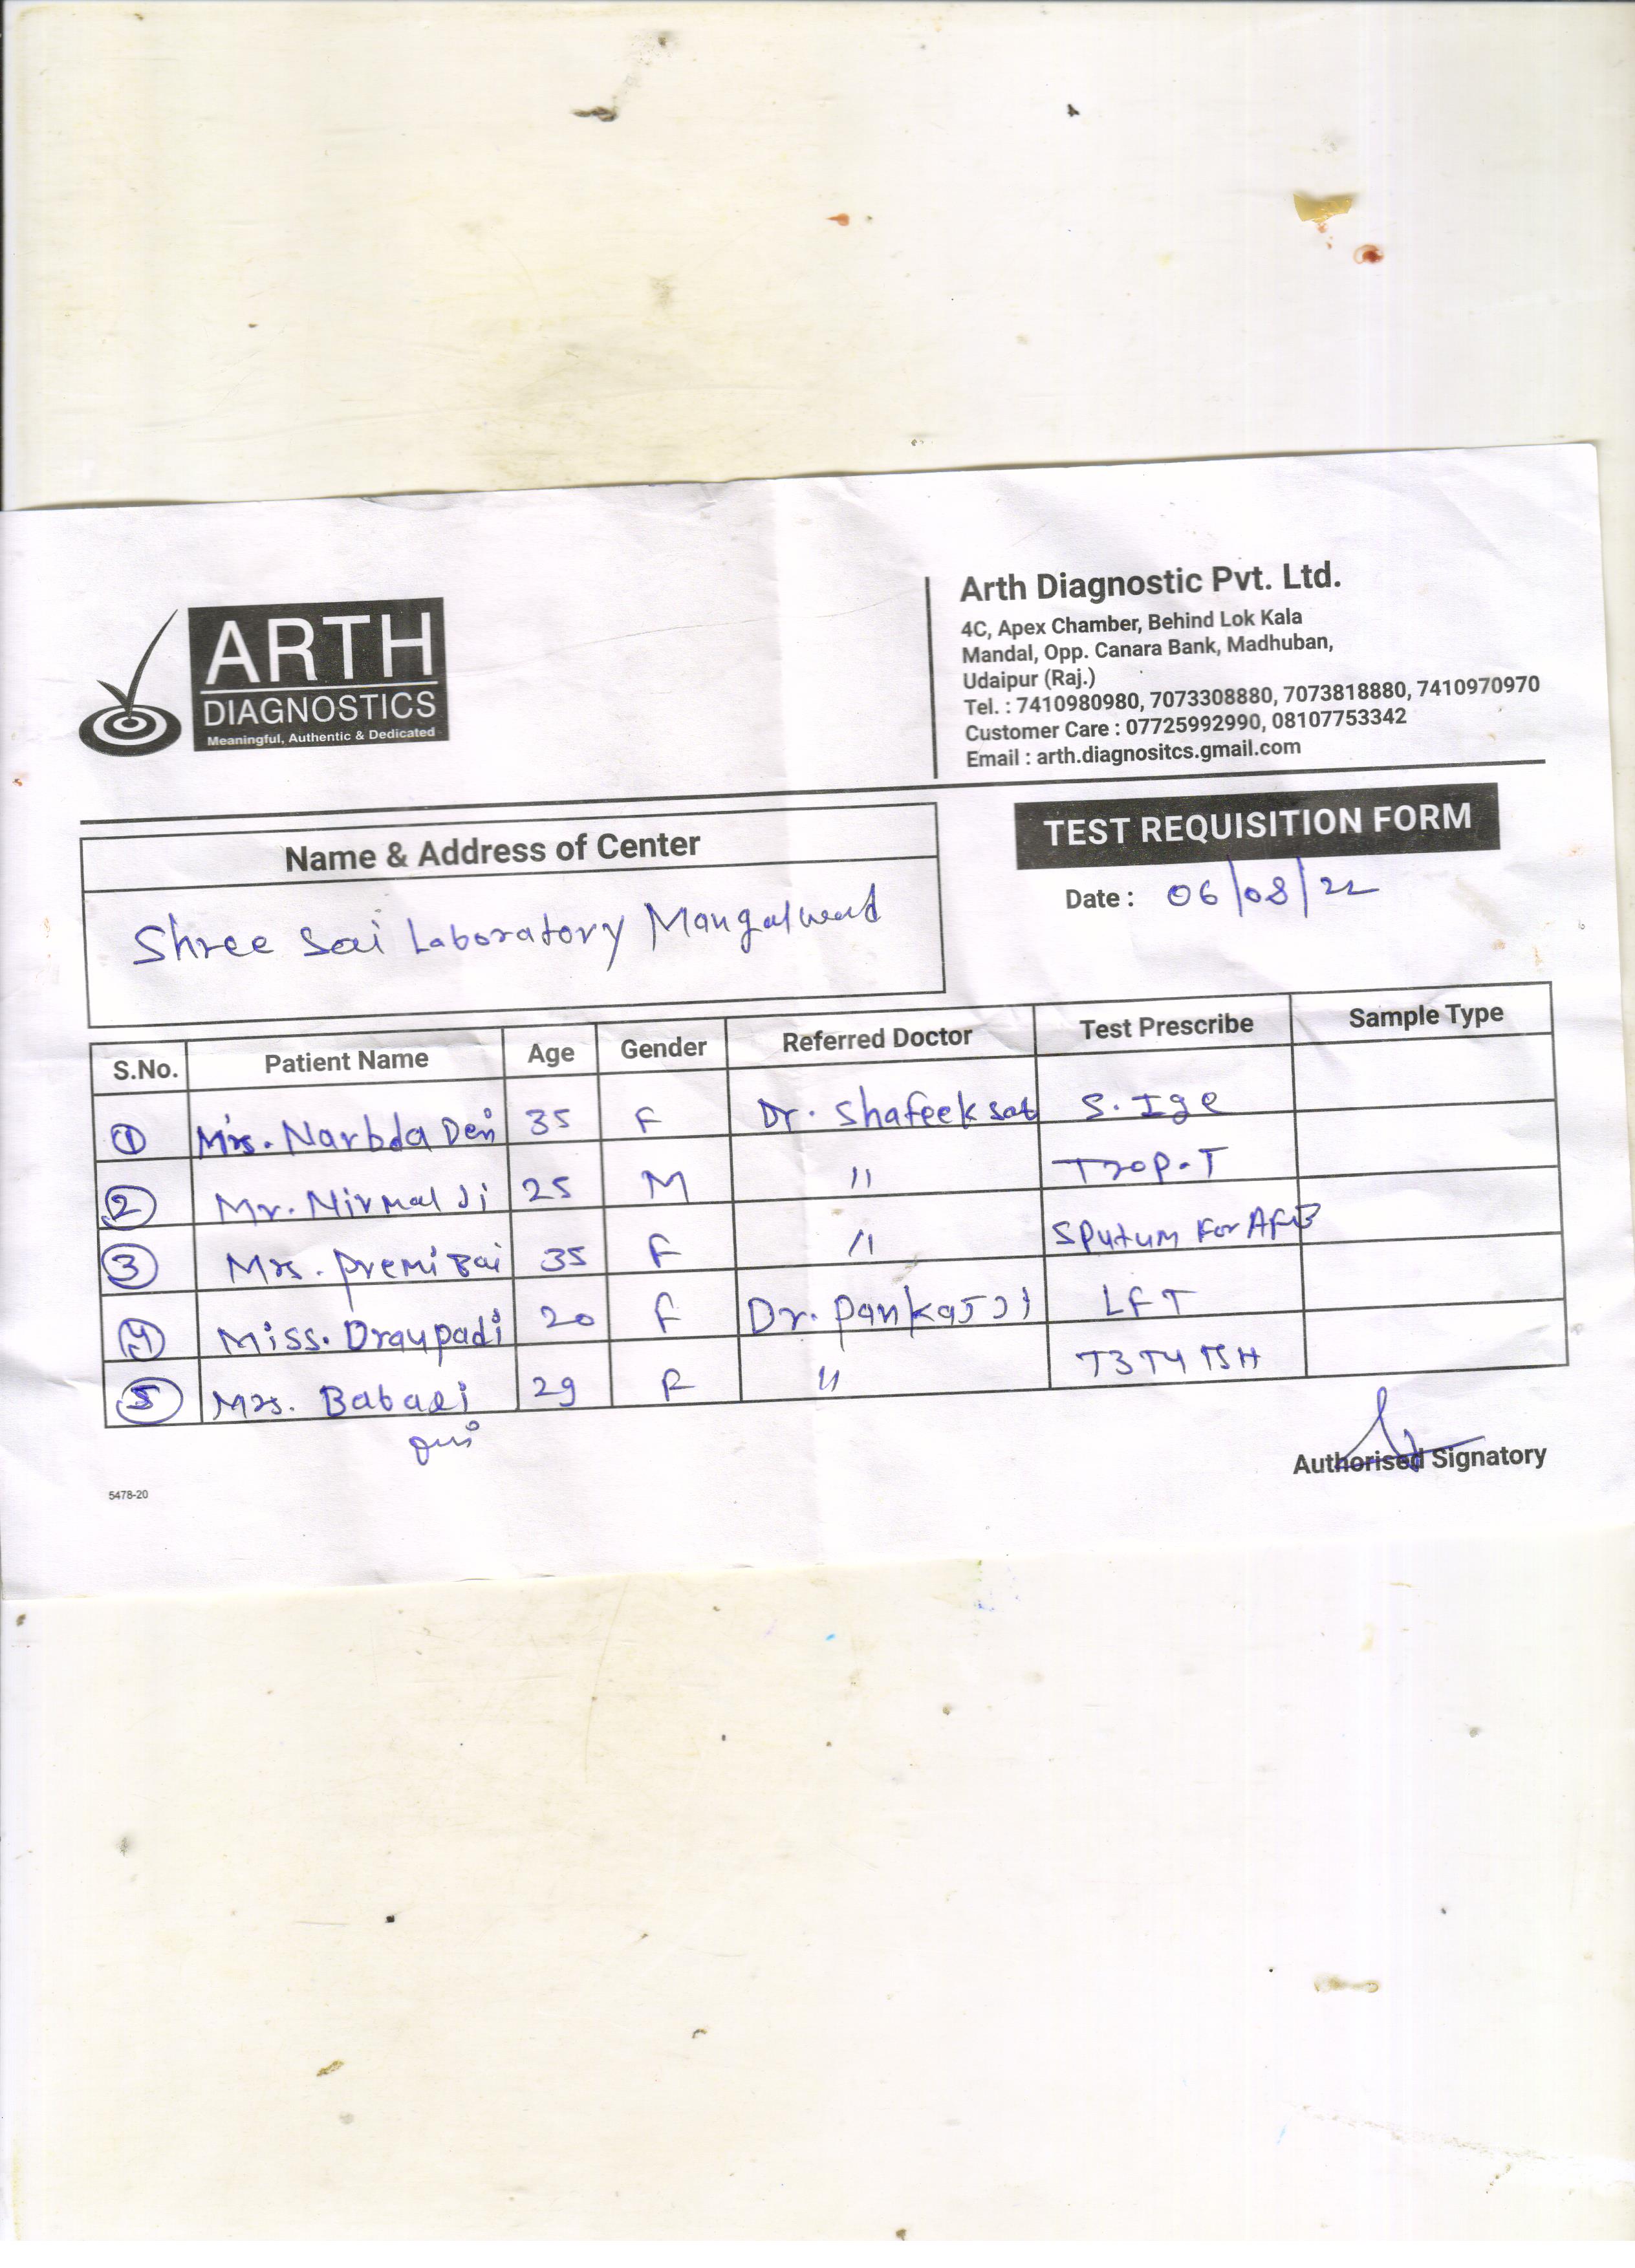 ARTH
DIAGNOSTICS
Meaningful, Authentic & Dedicated
Arth Diagnostic Pvt. Ltd.
4C, Apex Chamber, Behind Lok Kala
Mandal, Opp. Canara Bank, Madhuban,
Udaipur (Raj.)
Tel. : 7410980980, 7073308880, 7073818880, 7410970970
Customer Care : 07725992990, 08107753342
Email : arth.diagnositcs.gmail.com
Name & Address of Center
Shree Sai Laboratory Mangalwad
TEST REQUISITION FORM
Date : 06/08/22
S.No. Patient Name Age Gender Referred Doctor Test Prescribe Sample Type
1 Mrs. Narbda 35 F Dr. Shafeek S. Ige
2 Mr. Nirmal Ji 25 M " Trop-T
3 Mrs. Premi Bai 35 F " Sputum For AFB
4 Miss. Draupadi 20 F Dr. Pankaj Ji LFT
5 Mrs. 29 F " T3 T4 TSH
Authorised Signatory
5478-20